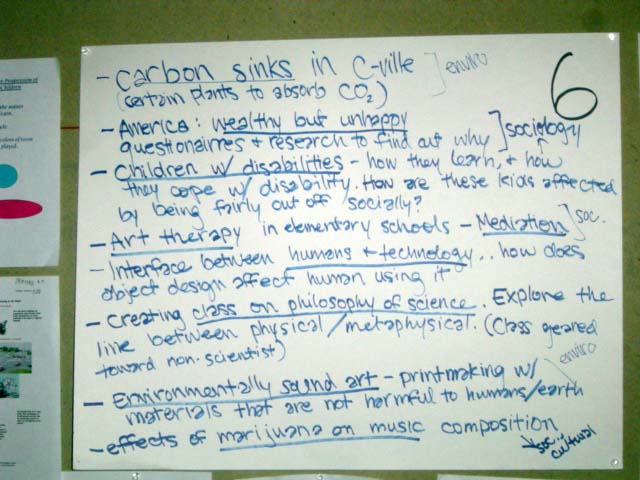 - Carbon sinks in C-ville ] enviro
(certain plants to absorb CO2)
6
- America: wealthy but unhappy
questionairres + research to find out why ] sociology
- Children w/ disabilities - how they learn, + how
they cope w/ disability. How are these kids affected
by being fairly cut off socially?
- Art therapy in elementary schools - Mediation ] soc.
- Interface between humans + technology.. how does
object design affect human using it
- Creating class on philosophy of science. Explore the
line between physical/metaphysical. (Class geared
toward non-scientist)
- Environmentally sound art - printmaking w/ ] enviro
materials that are not harmful to humans/earth
- effects of marijuana on music composition
soc. cultural